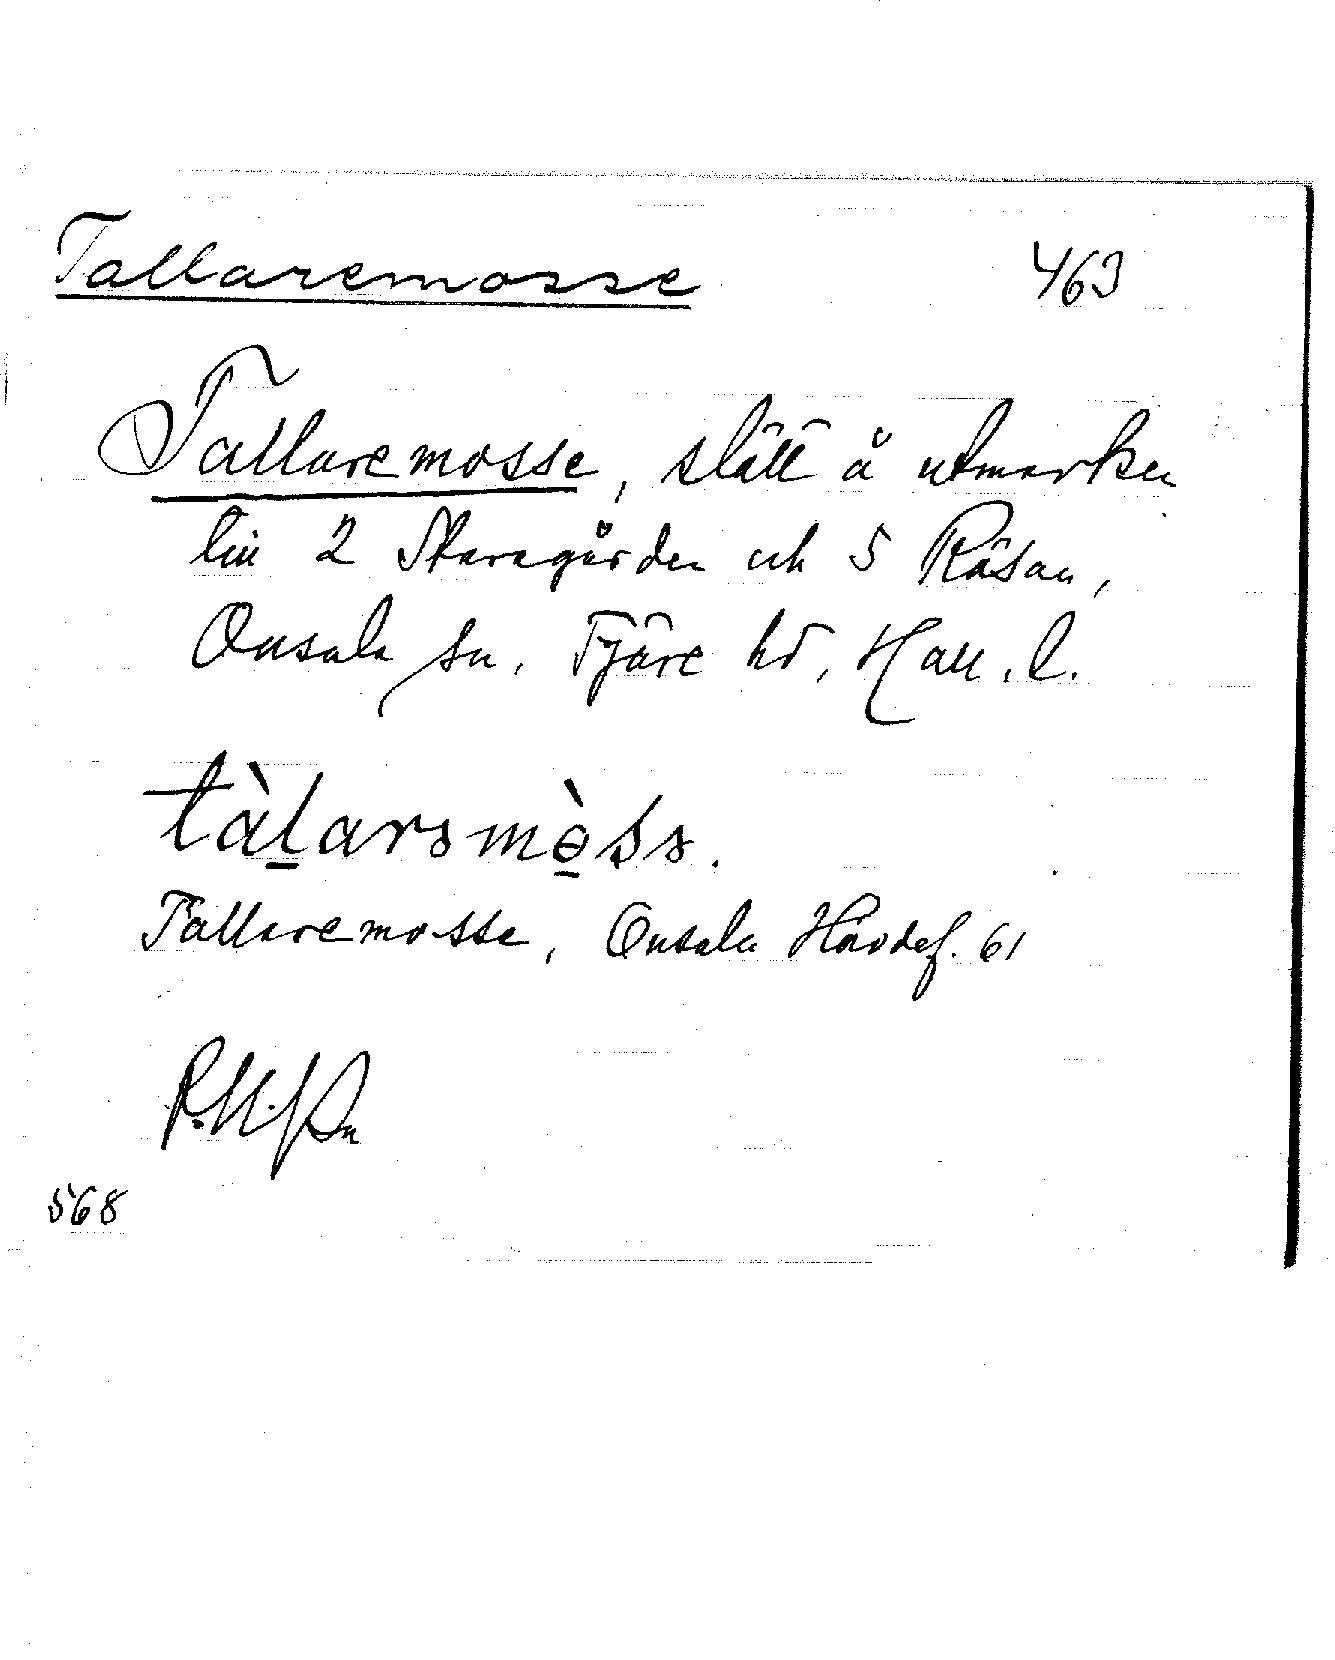 Tallaremosse 463
Tallaremosse, slätt å utmarken
till 2 Staragården och 5 Råsan,
Onsala sn, Fjäre hd, Hall. l.
Tallaremosse, Onsala Hävdef. 61
568